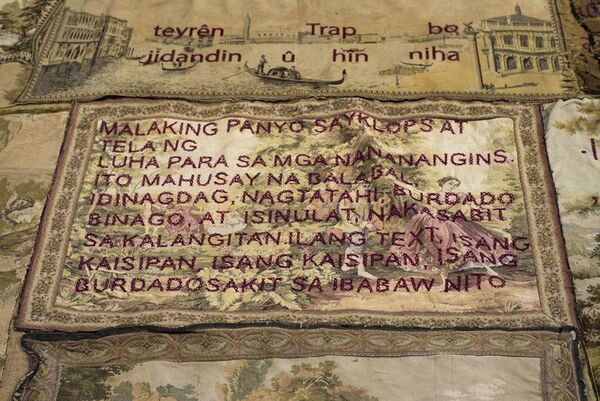 teyrên Trap bo
jidandin û hîn niha
MALAKING PANYO SAYKLOPS AT
TELA NG
LUHA PARA SA MGA NANANANGINS.
ITO MAHUSAY NA BALABAL
IDINAGDAG, NAGTATAHI, BURDADO
BINAGO, AT ISINULAT, NAKASABIT
SA KALANGITAN ILANG TEXT, ISANG
KAISIPAN ISANG KAISIPAN, ISANG
BURDADOSAKIT SA IBABAW NITO